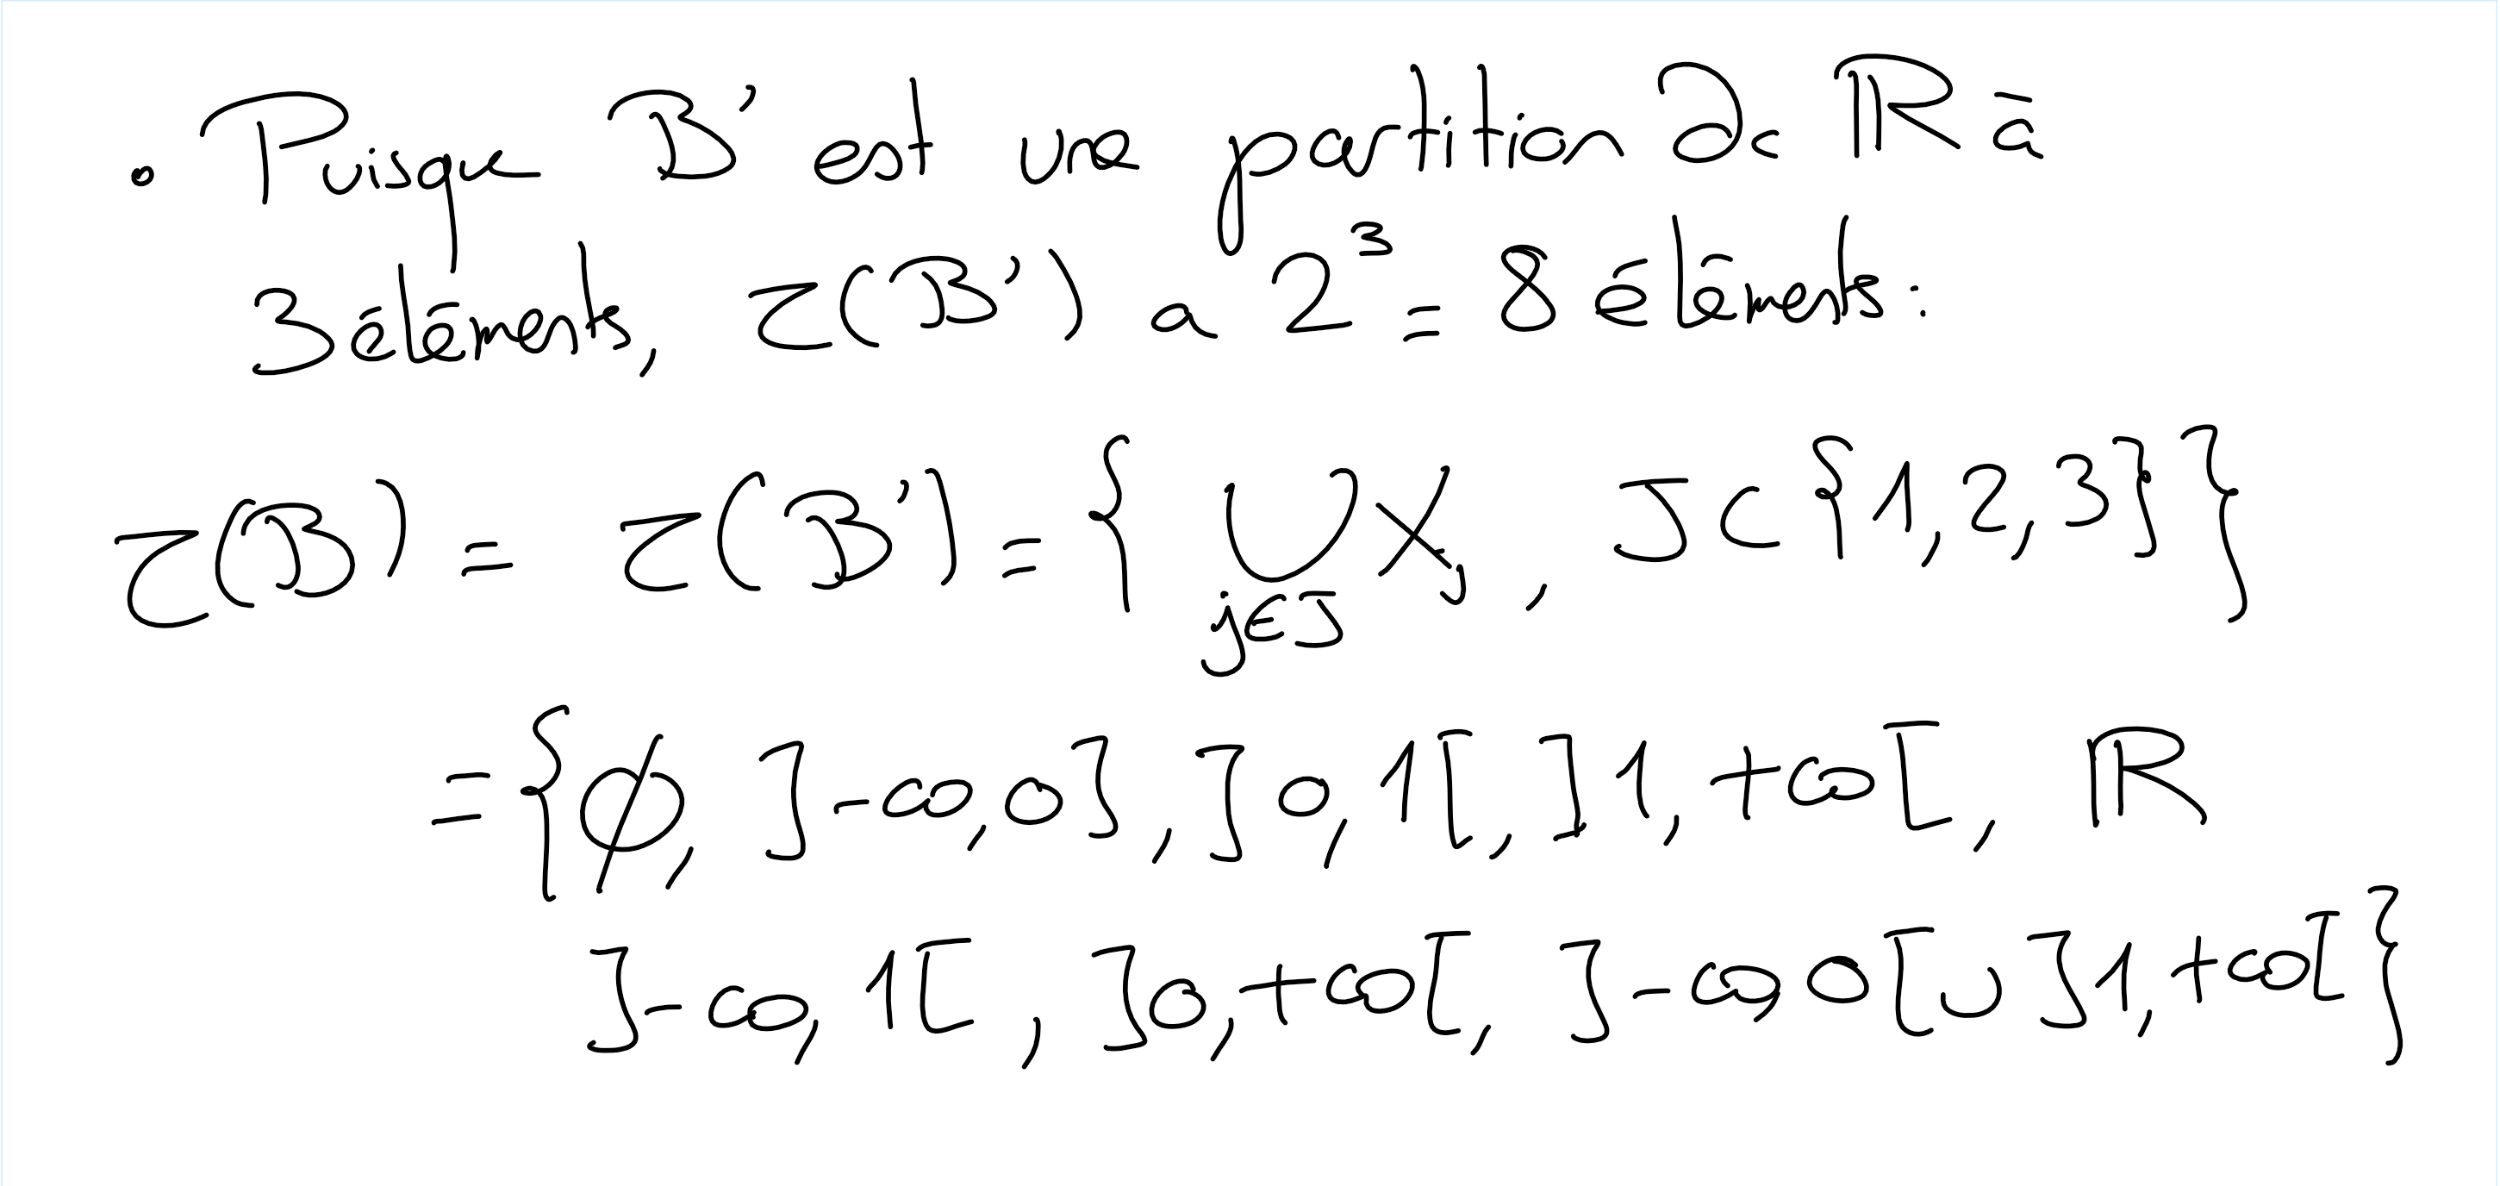 • Puisque B' est une partition de ℝ à
3 éléments, τ(B') a 2³ = 8 éléments :
τ(B) = τ(B') = { ⋃_{j∈J} X_j , J ⊂ {1,2,3} }
= { ∅, ]-∞,0], ]0,1[, ]1,+∞[, ℝ
]-∞,1[, ]0,+∞[, ]-∞,0[ ∪ ]1,+∞[ }